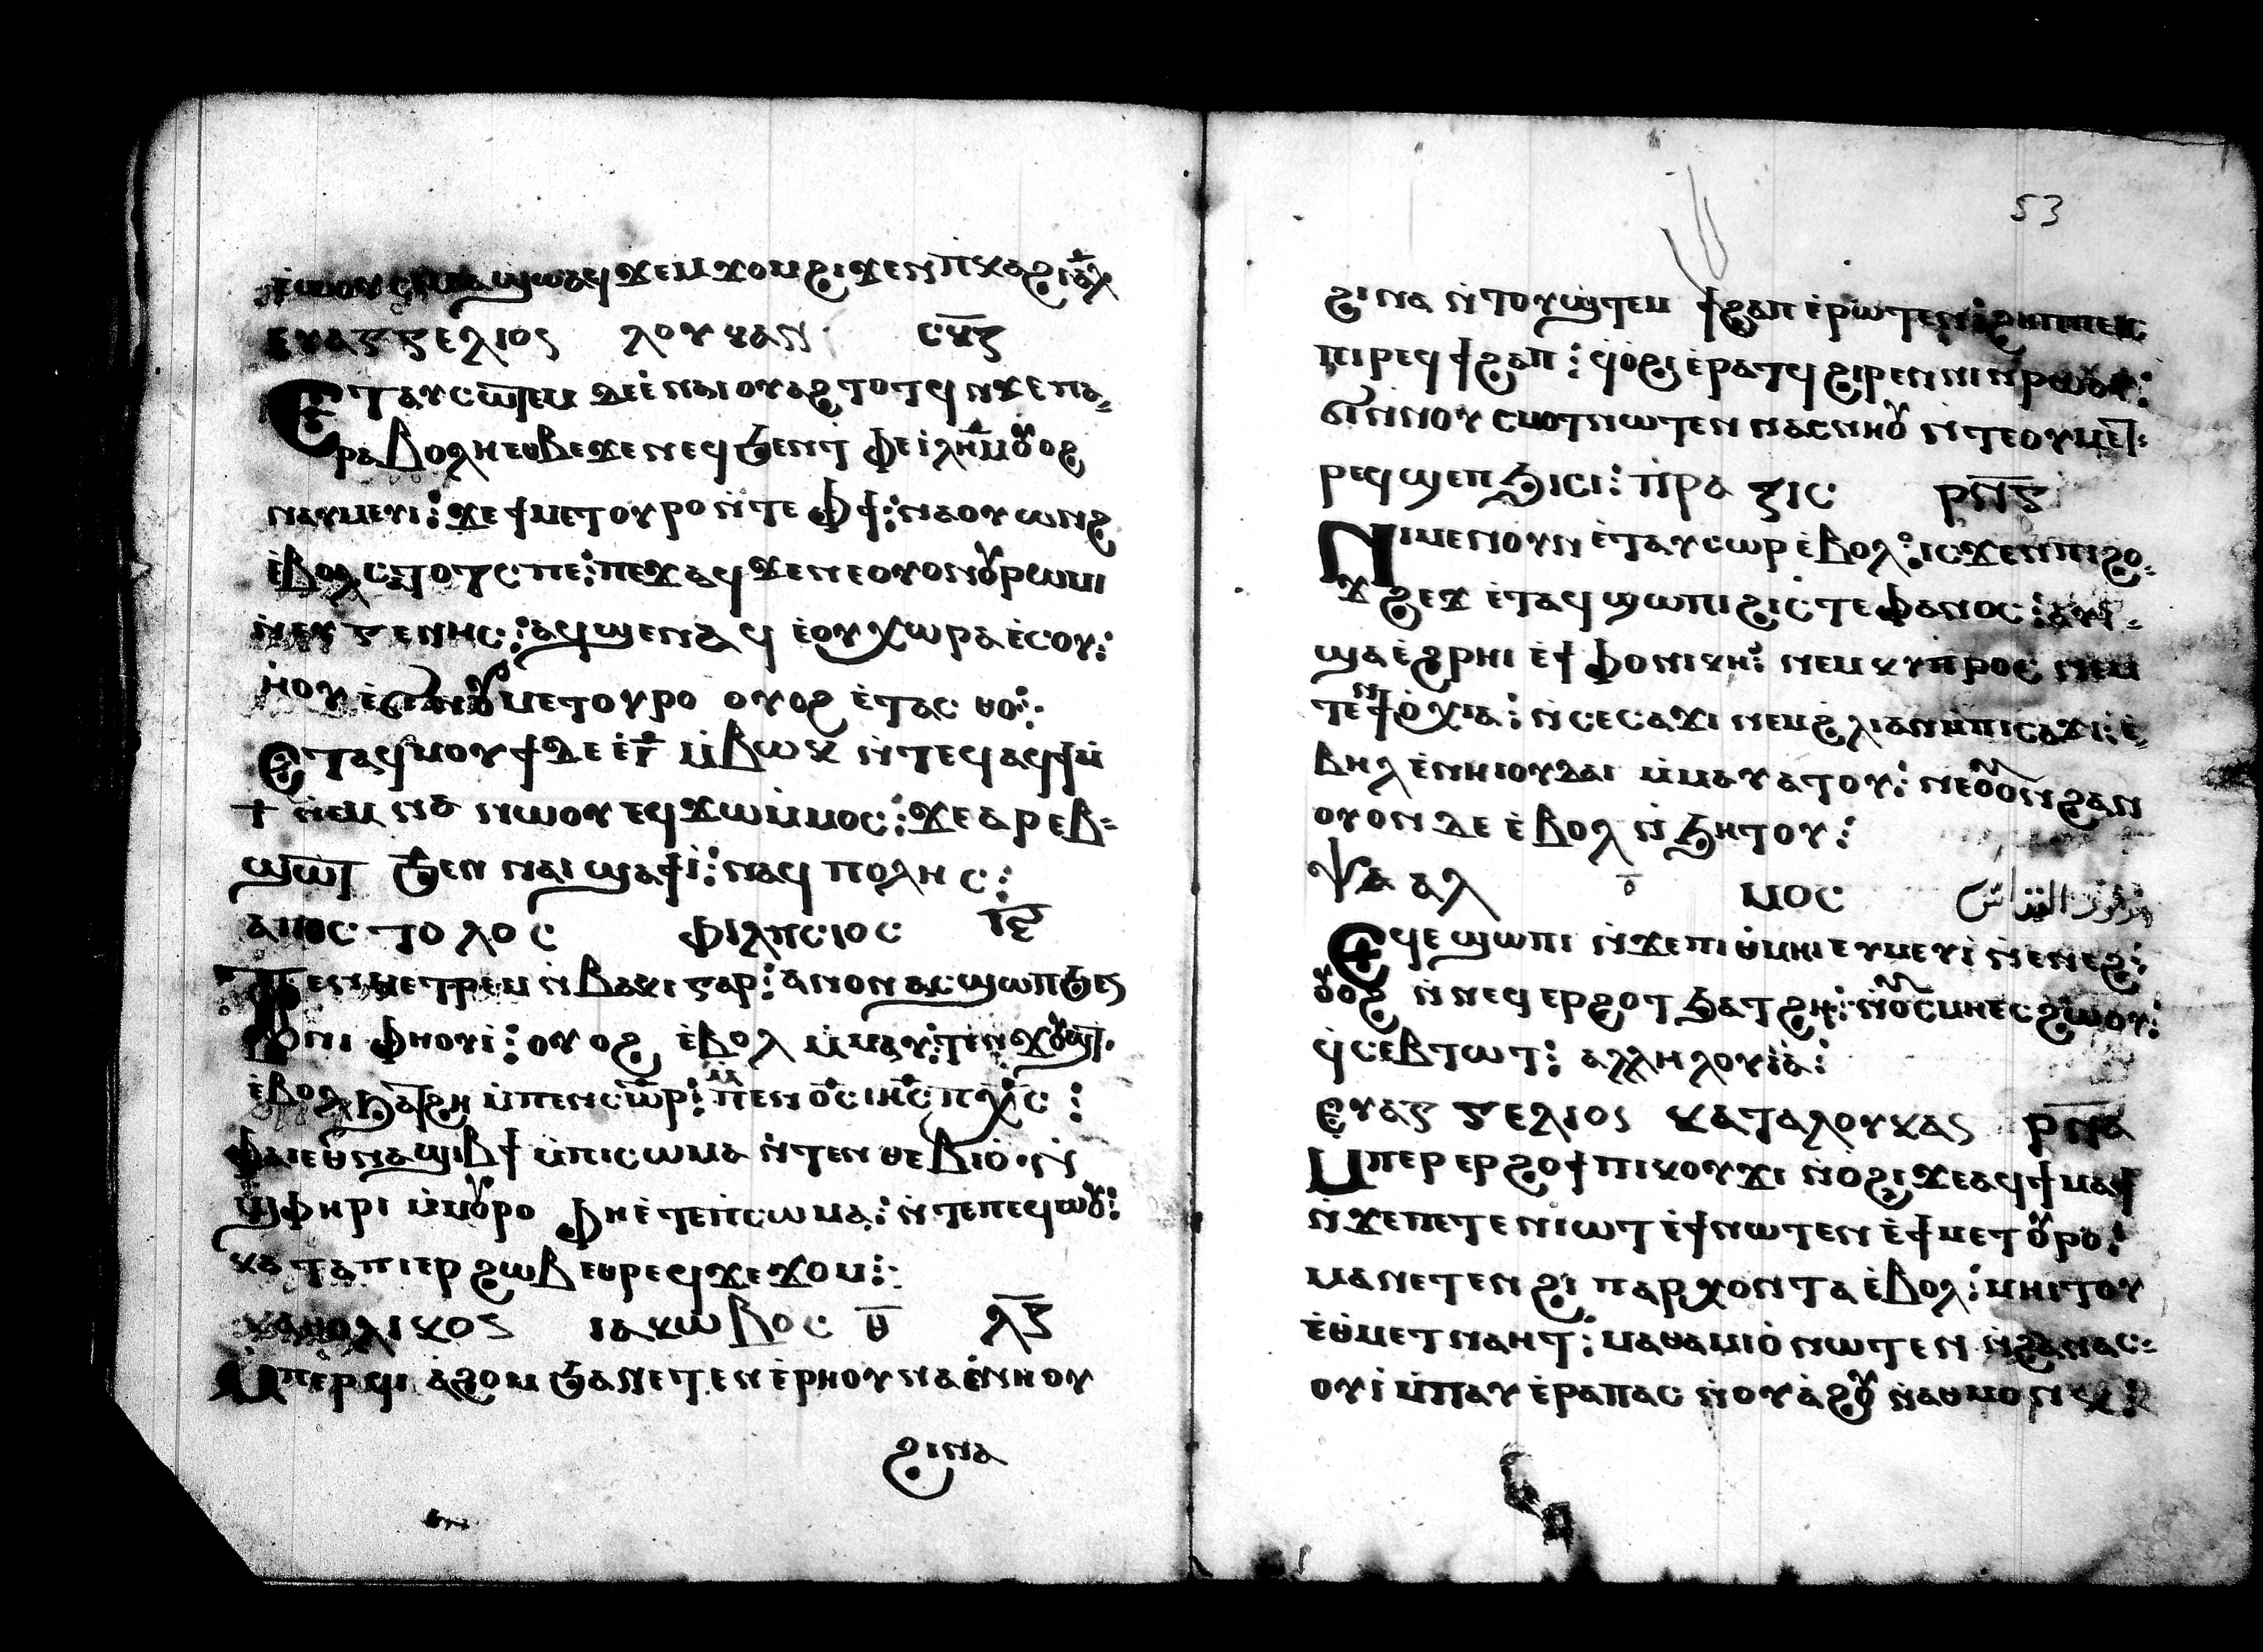 ϣⲱⲁϥ ϫⲉⲙϫⲟⲙ ϩⲓϫⲉⲛ ⲡⲕⲁϩⲓ ⲁ̅ⲗ
ⲉⲩⲁⲅⲅⲉⲗⲓⲟⲥ ⲗⲟⲩⲕⲁⲛ ⲥⲕ̅ⲍ
Ⲉⲧⲁⲩⲥⲱⲧⲉⲙ ⲇⲉ ⲉ̀ⲛⲁⲓ ⲟⲩⲁϩⲧⲟⲧϥ ⲛϫⲉ ⲡⲁ⸗
ⲣⲁⲃⲟⲗⲏ ⲉⲑⲃⲉϫⲉ ⲛⲉϥϧⲉⲛⲧ ⲫⲉ ⲓ̀ⲗⲏ̅ⲙ ⲟⲩⲟϩ
ⲛⲁⲩⲙⲉⲩⲓ: ϫⲉ ϯⲙⲉⲧⲟⲩⲣⲟ ⲛ̀ⲧⲉ ⲫϯ: ⲛⲁⲟⲩⲱⲛϩ
ⲉ̀ⲃⲟⲗ ⲥⲁⲧⲟⲧⲥ ⲡⲉ: ⲡⲉϫⲁϥ ϫⲉ ⲛⲉ ⲟⲩⲟⲛ ⲟⲩⲣⲱⲙⲓ
ⲛ̀ⲉⲩⲅⲉⲛⲏⲥ: ⲁϥϣⲉⲛⲁϥ ⲉ̀ⲟⲩⲭⲱⲣⲁ ⲉ̀ⲥⲟⲩ:
ⲏⲟⲩ ⲉ̀ϭⲓ ⲛ̀ⲟⲩⲙⲉⲧⲟⲩⲣⲟ ⲟⲩⲟϩ ⲉ̀ⲧⲁⲥⲑⲟ:
Ⲉⲧⲁϥⲙⲟⲩϯ ⲇⲉ ⲉ̀ⲓ̅ ⲙ̀ⲃⲱⲕ ⲛ̀ⲧⲉϥ ⲁϥϯ ⲙ̀
ϯ ⲛ̀ⲉⲙ ⲛⲁ ⲛⲱⲟⲩ ⲉϥϫⲱ ⲙ̀ⲙⲟⲥ: ϫⲉ ⲁⲣⲉⲃ⸗
ϣⲱⲧ ϧⲉⲛ ⲛⲁⲓ ϣⲁϯⲓ̀: ⲛⲁϥⲡⲟⲗⲏⲥ:
ⲁⲡⲟⲥⲧⲟⲗⲟⲥ ⲫⲓⲗⲡⲥⲓⲟⲥ ⲓ̅ⲍ̅
Ⲡⲉⲛⲙⲉⲧⲣⲉⲙⲛ̀ⲃⲁⲕⲓ ⲅⲁⲣ: ⲁⲛⲟⲛ ⲁⲥϣⲱⲡ ϧⲉⲛ
ⲛⲓ ⲫⲏⲟⲩⲓ̀: ⲟⲩⲟϩ ⲉ̀ⲃⲟⲗ ⲙ̀ⲙⲁⲩ: ⲧⲉⲛϫⲟⲩϣⲧ
ⲉ̀ⲃⲟⲗ ϧⲁⲧϩⲏ ⲙ̀ⲡⲉⲛⲥⲱ̅ⲣ: ⲡⲉⲛⲟ̅ⲥ ⲓⲏ̅ⲥ ⲡⲭ̅ⲥ:
ⲫⲁⲓ ⲉⲑⲛⲁϣⲓⲃϯ ⲙ̀ⲡⲓⲥⲱⲙⲁ ⲛ̀ⲧⲉⲛⲑⲉⲃⲓⲟ̀ ⲛ̀
ϣⲫⲏⲣⲓ ⲙ̀ⲙⲟⲩⲣⲟ ⲫⲏⲉ̀ⲧⲉⲡ̀ⲥⲱⲙⲁ: ⲛ̀ⲧⲉⲡⲉϥⲱⲟⲩ:
ⲕⲁⲧⲁ ⲡⲓⲉⲣϩⲱⲃ ⲉⲑⲣⲉϥϫⲉϫⲟⲙ:
ⲕⲁⲑⲟⲗⲓⲕⲟⲥ ⲓⲁⲕⲱⲃⲟⲥ ⲑ̅ ⲗ̅ⲍ
Ⲙ̀ⲡⲉⲣϥⲓ ⲁ̀ϩⲟⲙ ϧⲁ ⲛⲉⲧⲉⲛⲉ̀ⲣⲏⲟⲩ ⲛⲁⲥ̀ⲛⲏⲟⲩ
ϩⲓⲛⲁ
53
ϩⲓⲛⲁ ⲛ̀ⲧⲟⲩϣⲧⲉⲙ ϯϩⲁⲡ ⲉ̀ⲣⲱⲧⲉⲛ: ϩⲏⲡⲡⲉ ⲓⲥ
ⲡⲓⲣⲉϥϯϩⲁⲡ: ϥⲟ̀ϩⲓ ⲉ̀ⲣⲁⲧϥ ϩⲓⲣⲉⲛ ⲛⲓ ⲛ̀ⲣⲱⲟⲩ:
ϭⲓ ⲛⲛⲟⲩⲥⲙⲟⲧ ⲛⲱⲧⲉⲛ ⲛⲁⲥⲛⲏⲟⲩ ⲛ̀ⲧⲉ ⲟⲩⲙⲉⲧ:
ⲣⲉϥϣⲉⲡϧⲓⲥⲓ: ⲡ̀ⲣⲁⲝⲓⲥ ⲣⲛ̅ⲋ
Ⲛⲓⲙⲉⲛⲟⲩⲛ ⲉ̀ⲧⲁⲩⲥⲱⲣ ⲉ̀ⲃⲟⲗ: ⲓⲥϫⲉⲛ ⲡⲓϩⲟ⸗
ϫϩⲉϫ ⲉ̀ⲧⲁϥϣⲱⲡⲓ ϩⲓ ⲥ̀ⲧⲉⲫⲁⲛⲟⲥ: ⲁⲩⲓ̀⸗
ϣⲁⲉ̀ϩⲣⲏⲓ ⲉ̀ϯⲫⲟⲛⲓⲕⲏ: ⲛⲉⲙ ⲕⲩⲡⲣⲟⲥ ⲛⲉⲙ
ⲧⲉⲛϯⲟ̀ⲭⲓⲁ: ⲛ̀ⲥⲉⲥⲁϫⲓ ⲛⲉⲙ ϩ̀ⲗⲓ ⲁⲛ ⲙ̀ⲡⲓⲥⲁϫⲓ: ⲉ̀⸗
ⲃⲏⲗ ⲉ̀ⲛⲏⲓⲟⲩⲇⲁⲓ ⲙ̀ⲙⲁⲩⲁⲧⲟⲩ: ⲛⲉⲟⲩⲟⲛ ϩⲁⲛ
ⲟⲩⲟⲛ ⲇⲉ ⲉ̀ⲃⲟⲗ ⲛ̀ϧⲏⲧⲟⲩ:
Ⲯⲁⲁⲗ ⲟ̅ ⲙⲟⲥ
Ⲉϥⲉϣⲱⲡⲓ ⲛ̀ϫⲉ ⲡⲓⲑ̀ⲙⲏⲓ ⲉⲩⲙⲉⲩⲓ̀ ⲛ̀ⲉⲛⲉϩ:
ⲟⲩⲟϩ ⲛ̀ⲛⲉϥⲉⲣϩⲟϯ ϧⲁⲧϩⲏ: ⲛ̀ⲟⲩⲥⲙⲏ ⲉⲥϩⲱⲟⲩ:
ϥ̀ⲥⲉⲃⲧⲱⲧ: ⲁⲗⲗⲏⲗⲟⲩⲓ̀ⲁ̀:
ⲉⲩⲁⲅⲅⲉⲗⲓⲟⲥ ⲕⲁⲧⲁ ⲗⲟⲩⲕⲁⲥ ⲣⲛ̅ⲁ
Ⲙⲡⲉⲣⲉⲣϩⲟϯ ⲡⲓⲕⲟⲩϫⲓ ⲛ̀ⲟϩⲓ ϫⲉ ⲁϥϯⲙⲁϯ
ⲛ̀ϫⲉ ⲡⲉⲧⲉⲛⲓⲱⲧ ⲉ̀ϯ ⲛⲱⲧⲉⲛ ⲉ̀ϯⲙⲉⲧⲟⲩⲣⲟ:
ⲙⲁ ⲛⲉⲧⲉⲛϩⲓ̀ⲡⲁⲣⲭⲟⲛⲧⲁ ⲉ̀ⲃⲟⲗ: ⲙⲏⲓⲧⲟⲩ
ⲉ̀ⲑ̀ⲙⲉⲧⲛⲁⲏⲧ: ⲙⲁⲑⲁⲙⲓⲟ̀ ⲛⲱⲧⲉⲛ ⲛ̀ϩⲁⲛⲁⲥ⸗
ⲟⲩⲓ̀ ⲙ̀ⲡⲁⲩⲉ̀ⲣⲁⲡⲁⲥ ⲛ̀ⲟⲩⲁ̀ϩⲟ ⲛ̀ⲁⲑⲙⲟⲩⲛⲕ: